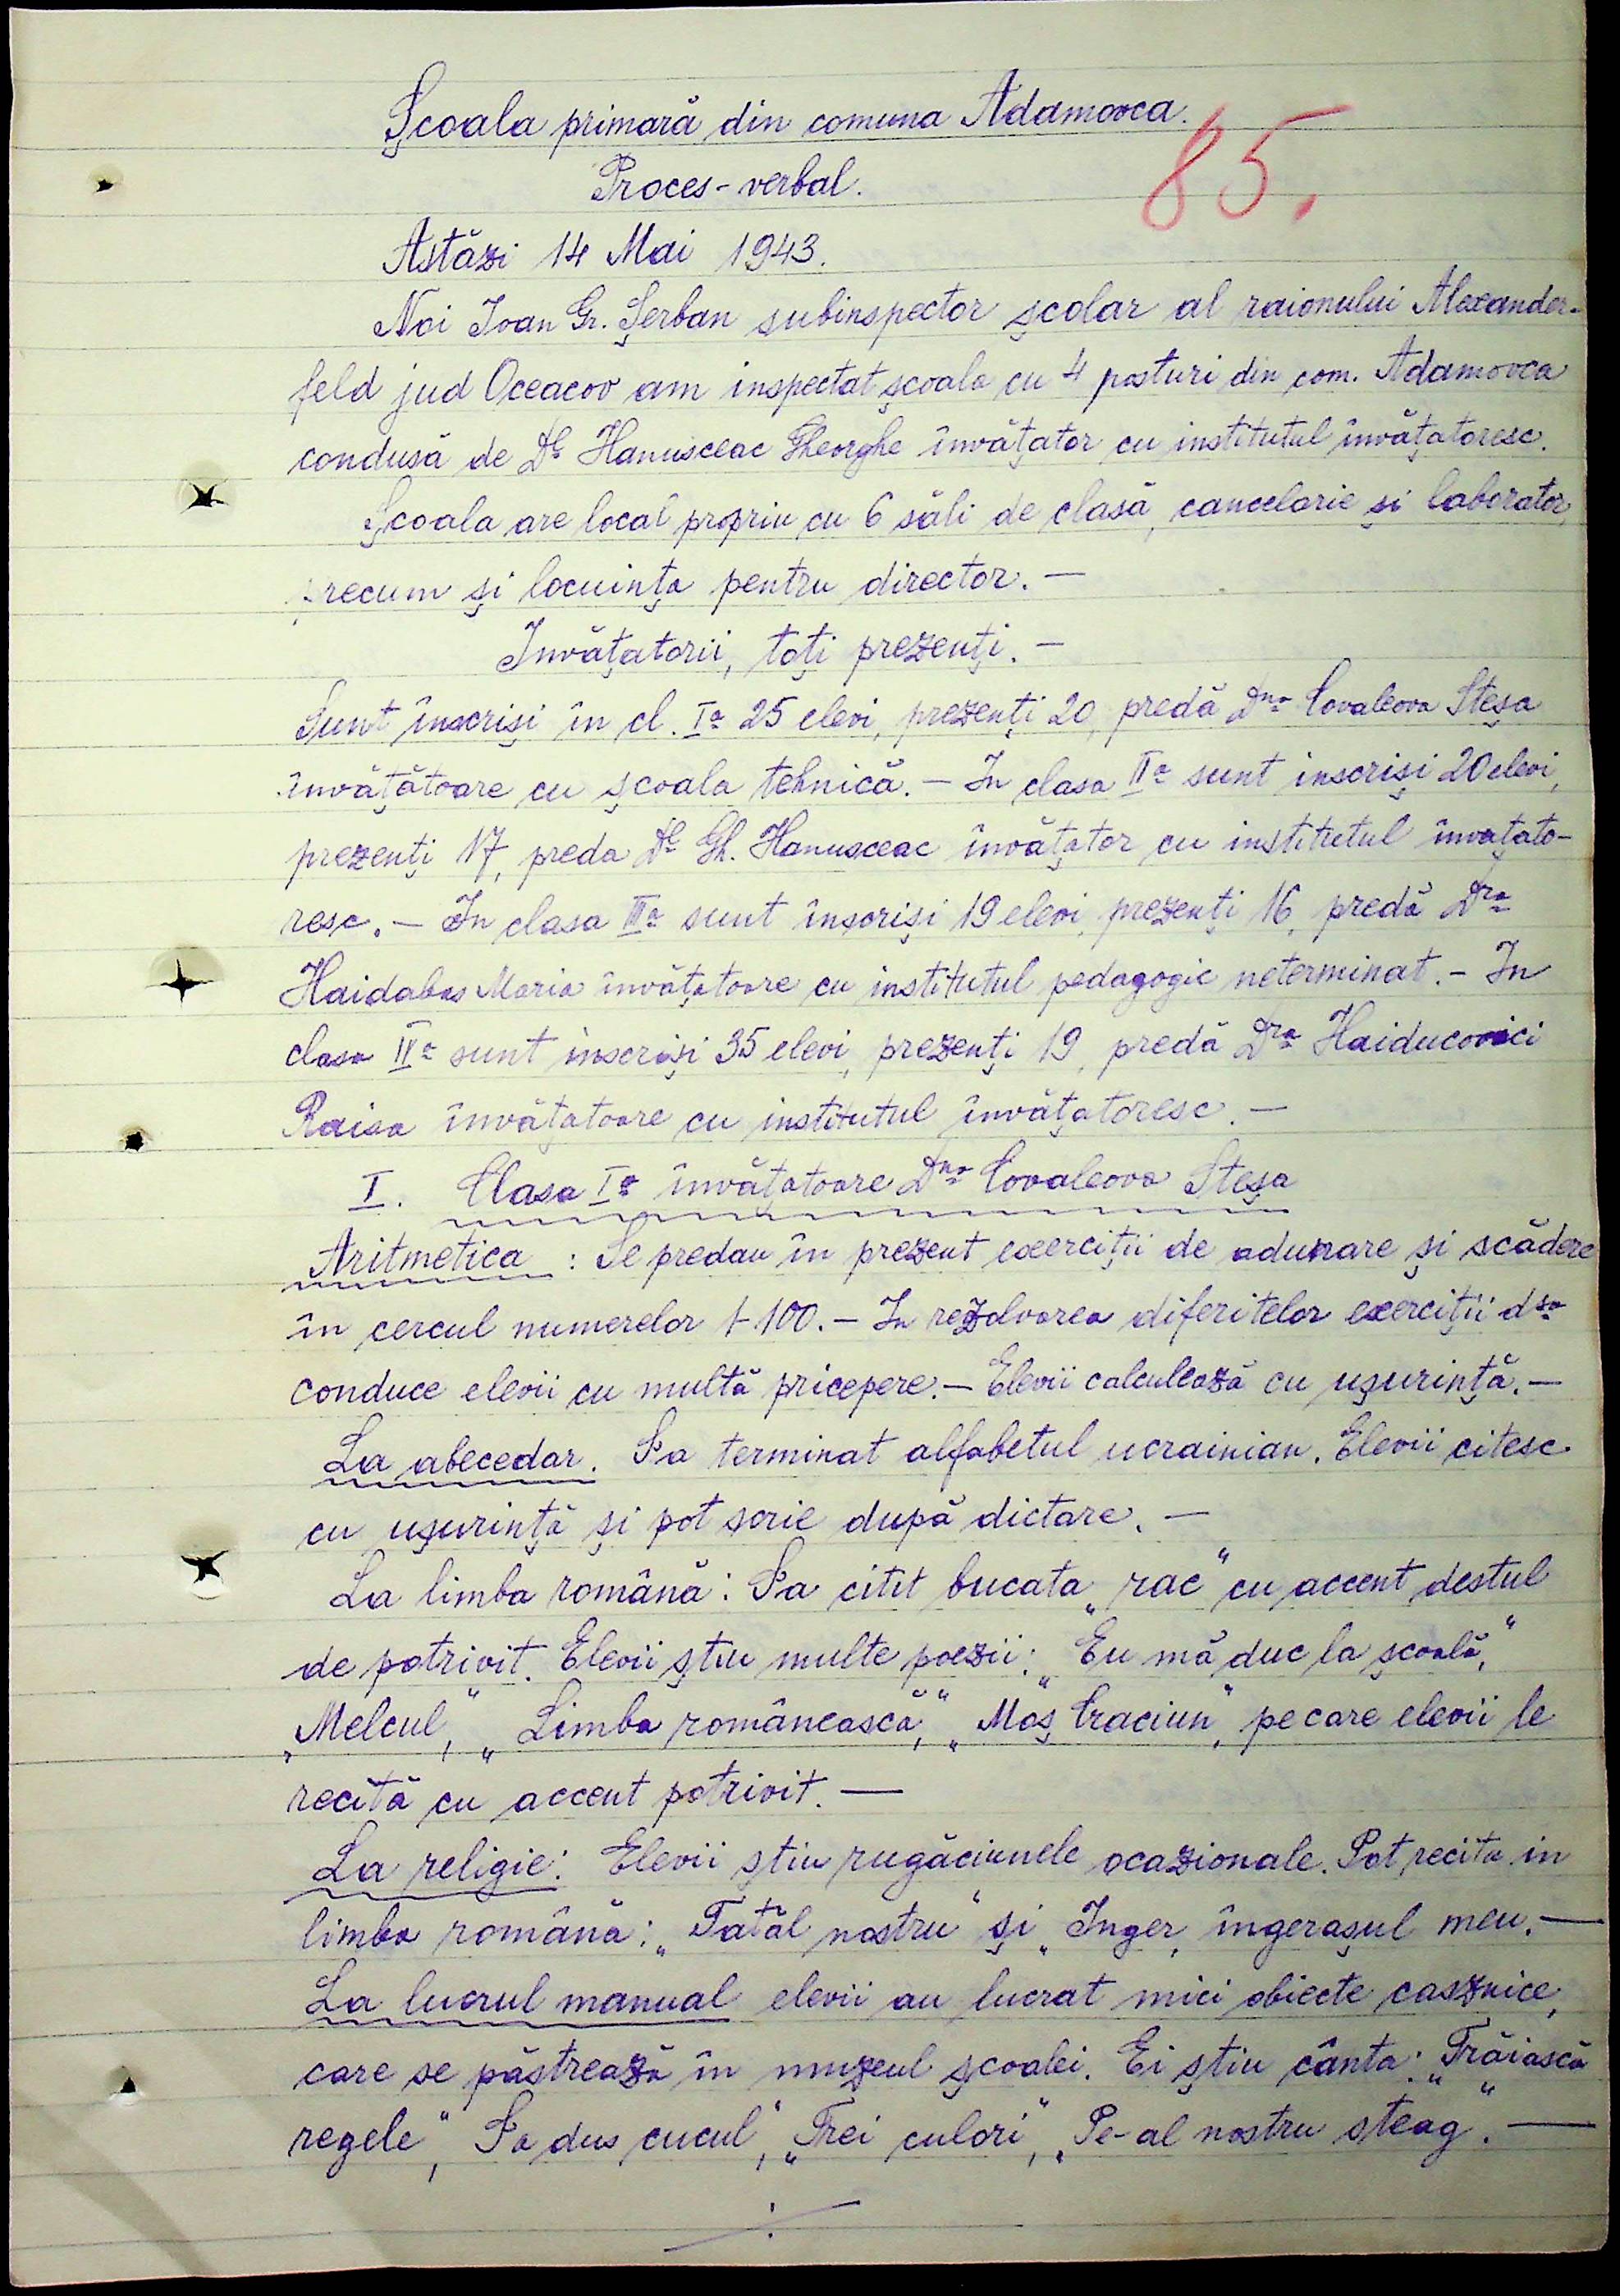 Școala primară din comuna Adamovca.
85.
Proces-verbal.
Astăzi 14 Mai 1943.
Noi Ioan Gr. Șerban subinspector școlar al raionului Alexander-
feld jud Oceacov am inspectat școala cu 4 posturi din com. Adamovca
condusă de Dl Hanusceac Gheorghe învățator cu institutul învățatoresc.
Școala are local propriu cu 6 săli de clasă, cancelarie și laborator,
precum și locuința pentru director. —
Invățatorii, toți prezenți. —
Sunt înscriși în cl. Ia 25 elevi, prezenți 20, predă Dna Covaleova Steșa
învățătoare cu școala tehnică. — In clasa IIa sunt inscriși 20 elevi,
prezenți 17, preda Dl Gh. Hanusceac învățator cu institutul învațato-
resc. — In clasa IIIa sunt înscriși 19 elevi, prezenți 16, predă Dra
Haidabas Maria învățatoare cu institutul pedagogic neterminat. — In
clasa IVa sunt inscriși 35 elevi, prezenți 19, predă Dra Haiducovici
Raisa învățatoare cu institutul învățatoresc. —
I. Clasa Ia învățatoare Dna Covaleova Steșa
Aritmetica : Se predau în prezent exerciții de adunare și scădere
în cercul numerelor 1-100. — In rezolvarea diferitelor exerciții dsa
conduce elevii cu multă pricepere. — Elevii calculează cu ușurință. —
La abecedar. S'a terminat alfabetul ucrainian. Elevii citesc
cu ușurință și pot scrie după dictare. —
La limba română: S'a citit bucata „rac" cu accent destul
de potrivit. Elevii știu multe poezii: „Eu mă duc la școală",
„Melcul", „Limba românească", „Moș Craciun", pe care elevii le
recită cu accent potrivit. —
La religie: Elevii știu rugăciunele ocazionale. Pot recita in
limba română: „Tatăl nostru" și „Inger, îngerașul meu. —
La lucrul manual elevii au lucrat mici obiecte casznice,
care se păstrează în muzeul școalei. Ei știu cânta: „Trăiască
regele", S'a dus cucul", „Trei culori", „Pe-al nostru steag". —
./.